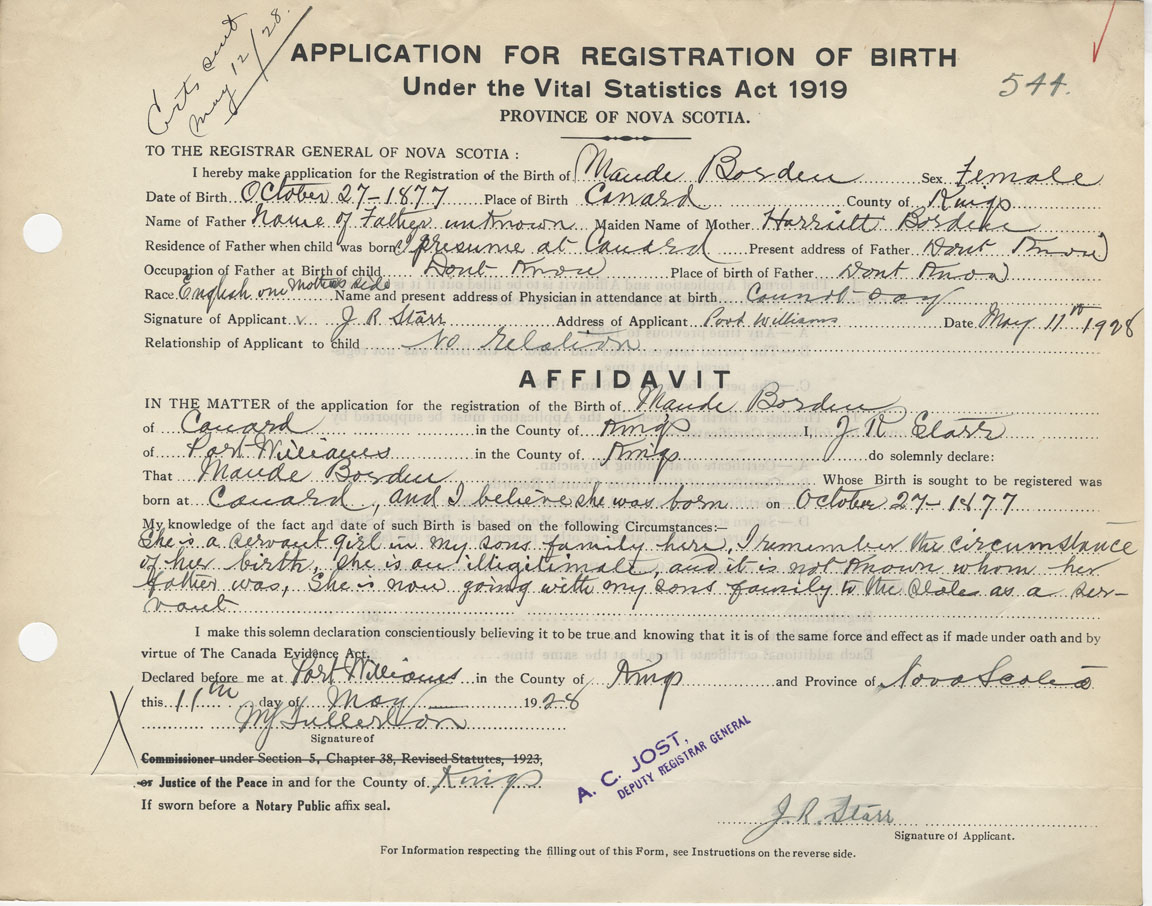 Certs sent
May 12/28.
APPLICATION FOR REGISTRATION OF BIRTH
Under the Vital Statistics Act 1919
544.
PROVINCE OF NOVA SCOTIA.
TO THE REGISTRAR GENERAL OF NOVA SCOTIA :
I hereby make application for the Registration of the Birth of Maude Borden Sex Female
Date of Birth October 27-1877 Place of Birth Canard County of Kings
Name of Father Name of Father unKnown Maiden Name of Mother Harriett Borden
Residence of Father when child was born I presume at Canard Present address of Father Dont Know
Occupation of Father at Birth of child Dont Know Place of birth of Father Dont Know
Race English on mothers side Name and present address of Physician in attendance at birth cannot say
Signature of Applicant J R Starr Address of Applicant Port Williams Date May 11th 1928
Relationship of Applicant to child No Relation
AFFIDAVIT
IN THE MATTER of the application for the registration of the Birth of Maude Borden
of Canard in the County of Kings I, J R Starr
of Port Williams in the County of Kings do solemnly declare:
That Maude Borden Whose Birth is sought to be registered was
born at Canard, and I believe she was born on October 27-1877
My knowledge of the fact and date of such Birth is based on the following Circumstances:—
She is a servant girl in my sons family here, I remember the circumstance
of her birth, She is an illigitimate, and it is not Known whom her
father was, She is now going with my sons family to the States as a ser-
vant
I make this solemn declaration conscientiously believing it to be true and knowing that it is of the same force and effect as if made under oath and by
virtue of The Canada Evidence Act.
Declared before me at Port Williams in the County of Kings and Province of Nova Scotia
this 11th day of May 1928
Fullerton
Signature of
Commissioner under Section 5, Chapter 38, Revised Statutes, 1923,
or Justice of the Peace in and for the County of Kings
If sworn before a Notary Public affix seal.
A. C. JOST,
DEPUTY REGISTRAR GENERAL
J. R. Starr
Signature of Applicant.
For Information respecting the filling out of this Form, see Instructions on the reverse side.